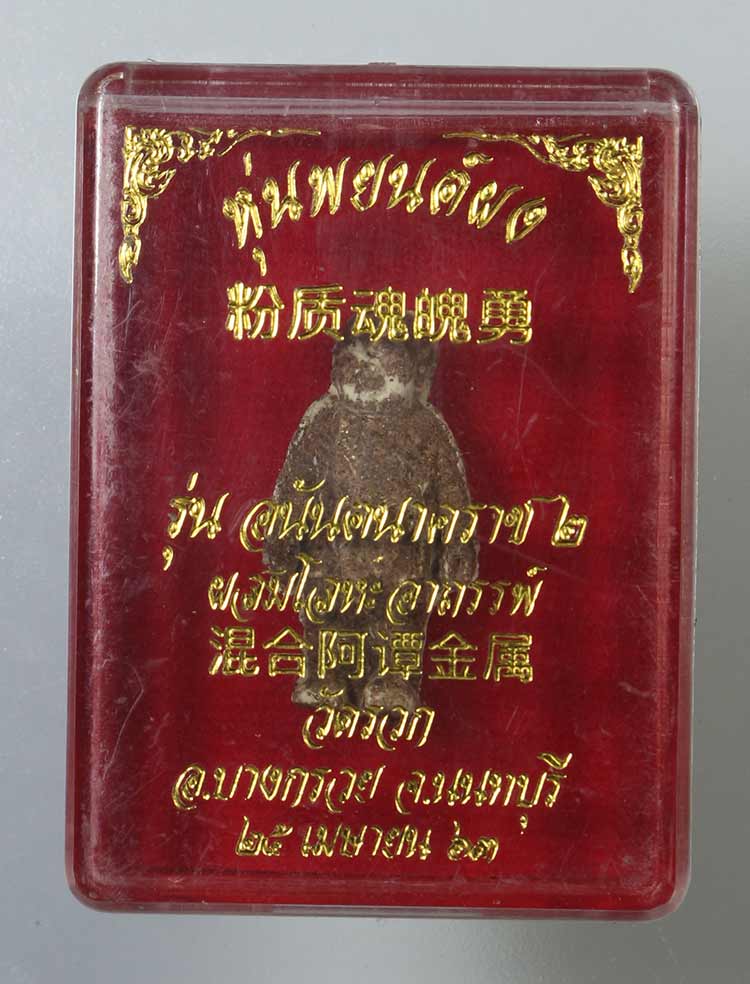 หุ่นพยนต์ผง
粉质魂魄勇
รุ่น อนันตนาคราช ๒
ผสมโลหะ อาถรรพ์
混合阿谭金属
วัดรวก
อ.บางกรวย จ.นนทบุรี
๒๕ เมษายน ๖๓